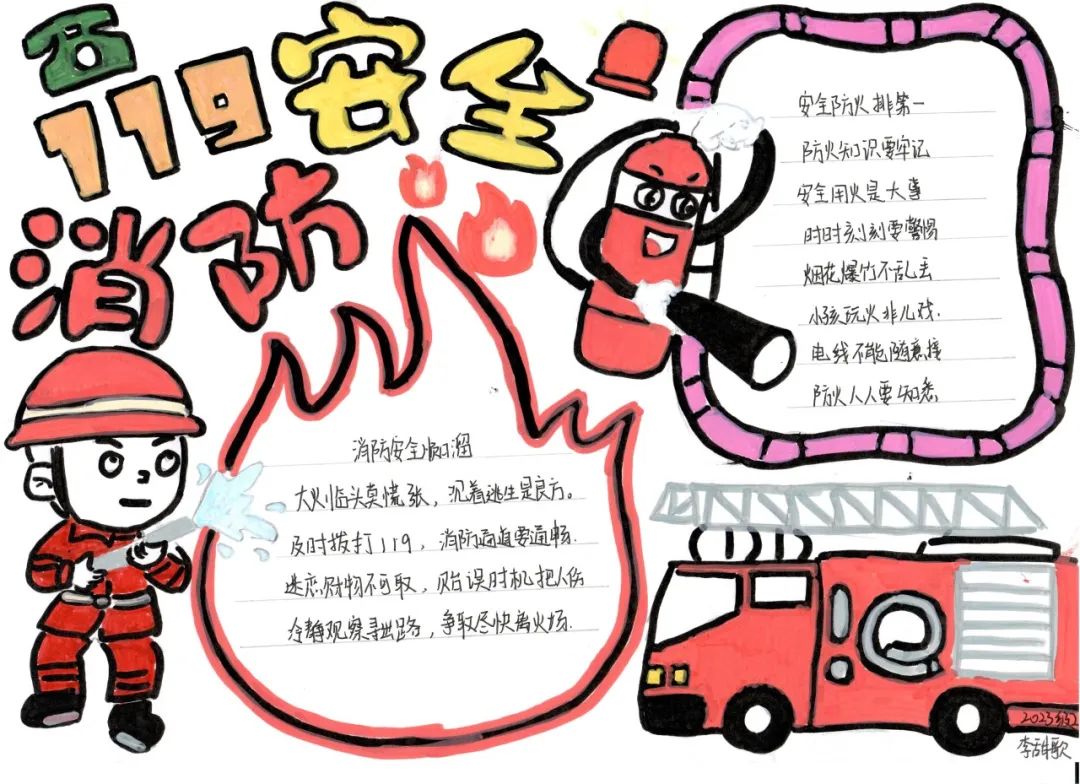 119安全
消防
消防安全顺口溜
大火临头莫慌张，沉着逃生是良方。
及时拨打119，消防通道要通畅.
迷恋财物不可取，贻误时机把人伤
冷静观察寻出路，争取尽快离火场.
安全防火排第一
防火知识要牢记
安全用火是大事
时时刻刻要警惕
烟花爆竹不乱丢
小孩玩火非儿戏.
电线不能随意接
防火人人要知悉
2023级2